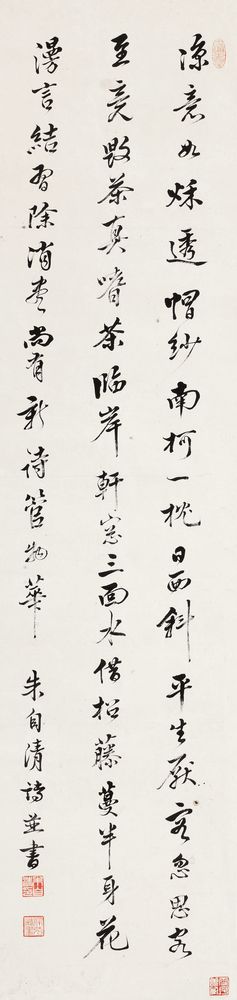 涼意如秌透帽紗南柯一枕日西斜平生厭客忽思客
至竟毀茶真嗜茶臨岸軒窗三面水借松藤蔓半身花
漫言結習除消盡尚有新詩管物華
朱自清詩並書